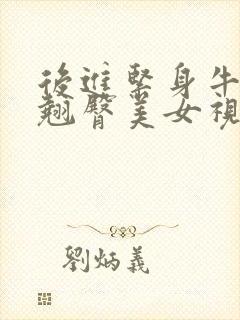 後進緊身牛
翹臀美女視
劉炳義